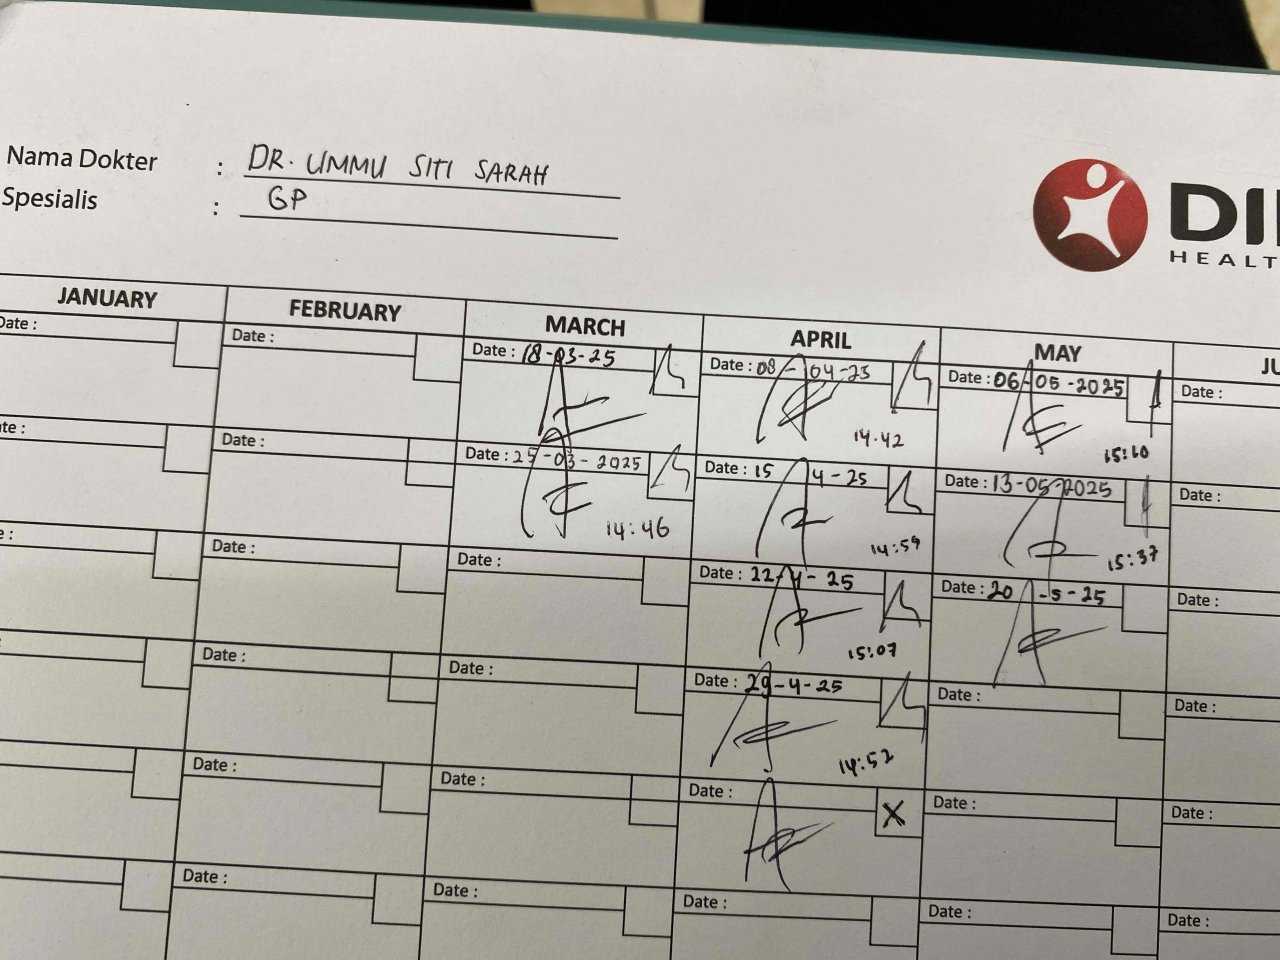 Nama Dokter : DR. UMMU SITI SARAH
Spesialis : GP
DI
HEALT
JANUARY FEBRUARY MARCH APRIL MAY JU
Date : Date : Date : 18-03-25 Date : 08-04-25 Date : 06-05-2025 Date :
14.42 15:10
te : Date : Date : 25-03-2025 Date : 15 4-25 Date : 13-05-2025 Date :
14:46 14:59 15:37
e : Date : Date : Date : 22-4-25 Date : 20-5-25 Date :
15:07
: Date : Date : Date : 29-4-25 Date : Date :
14:52
Date : Date : Date : X Date : Date :
Date : Date : Date : Date : Date :